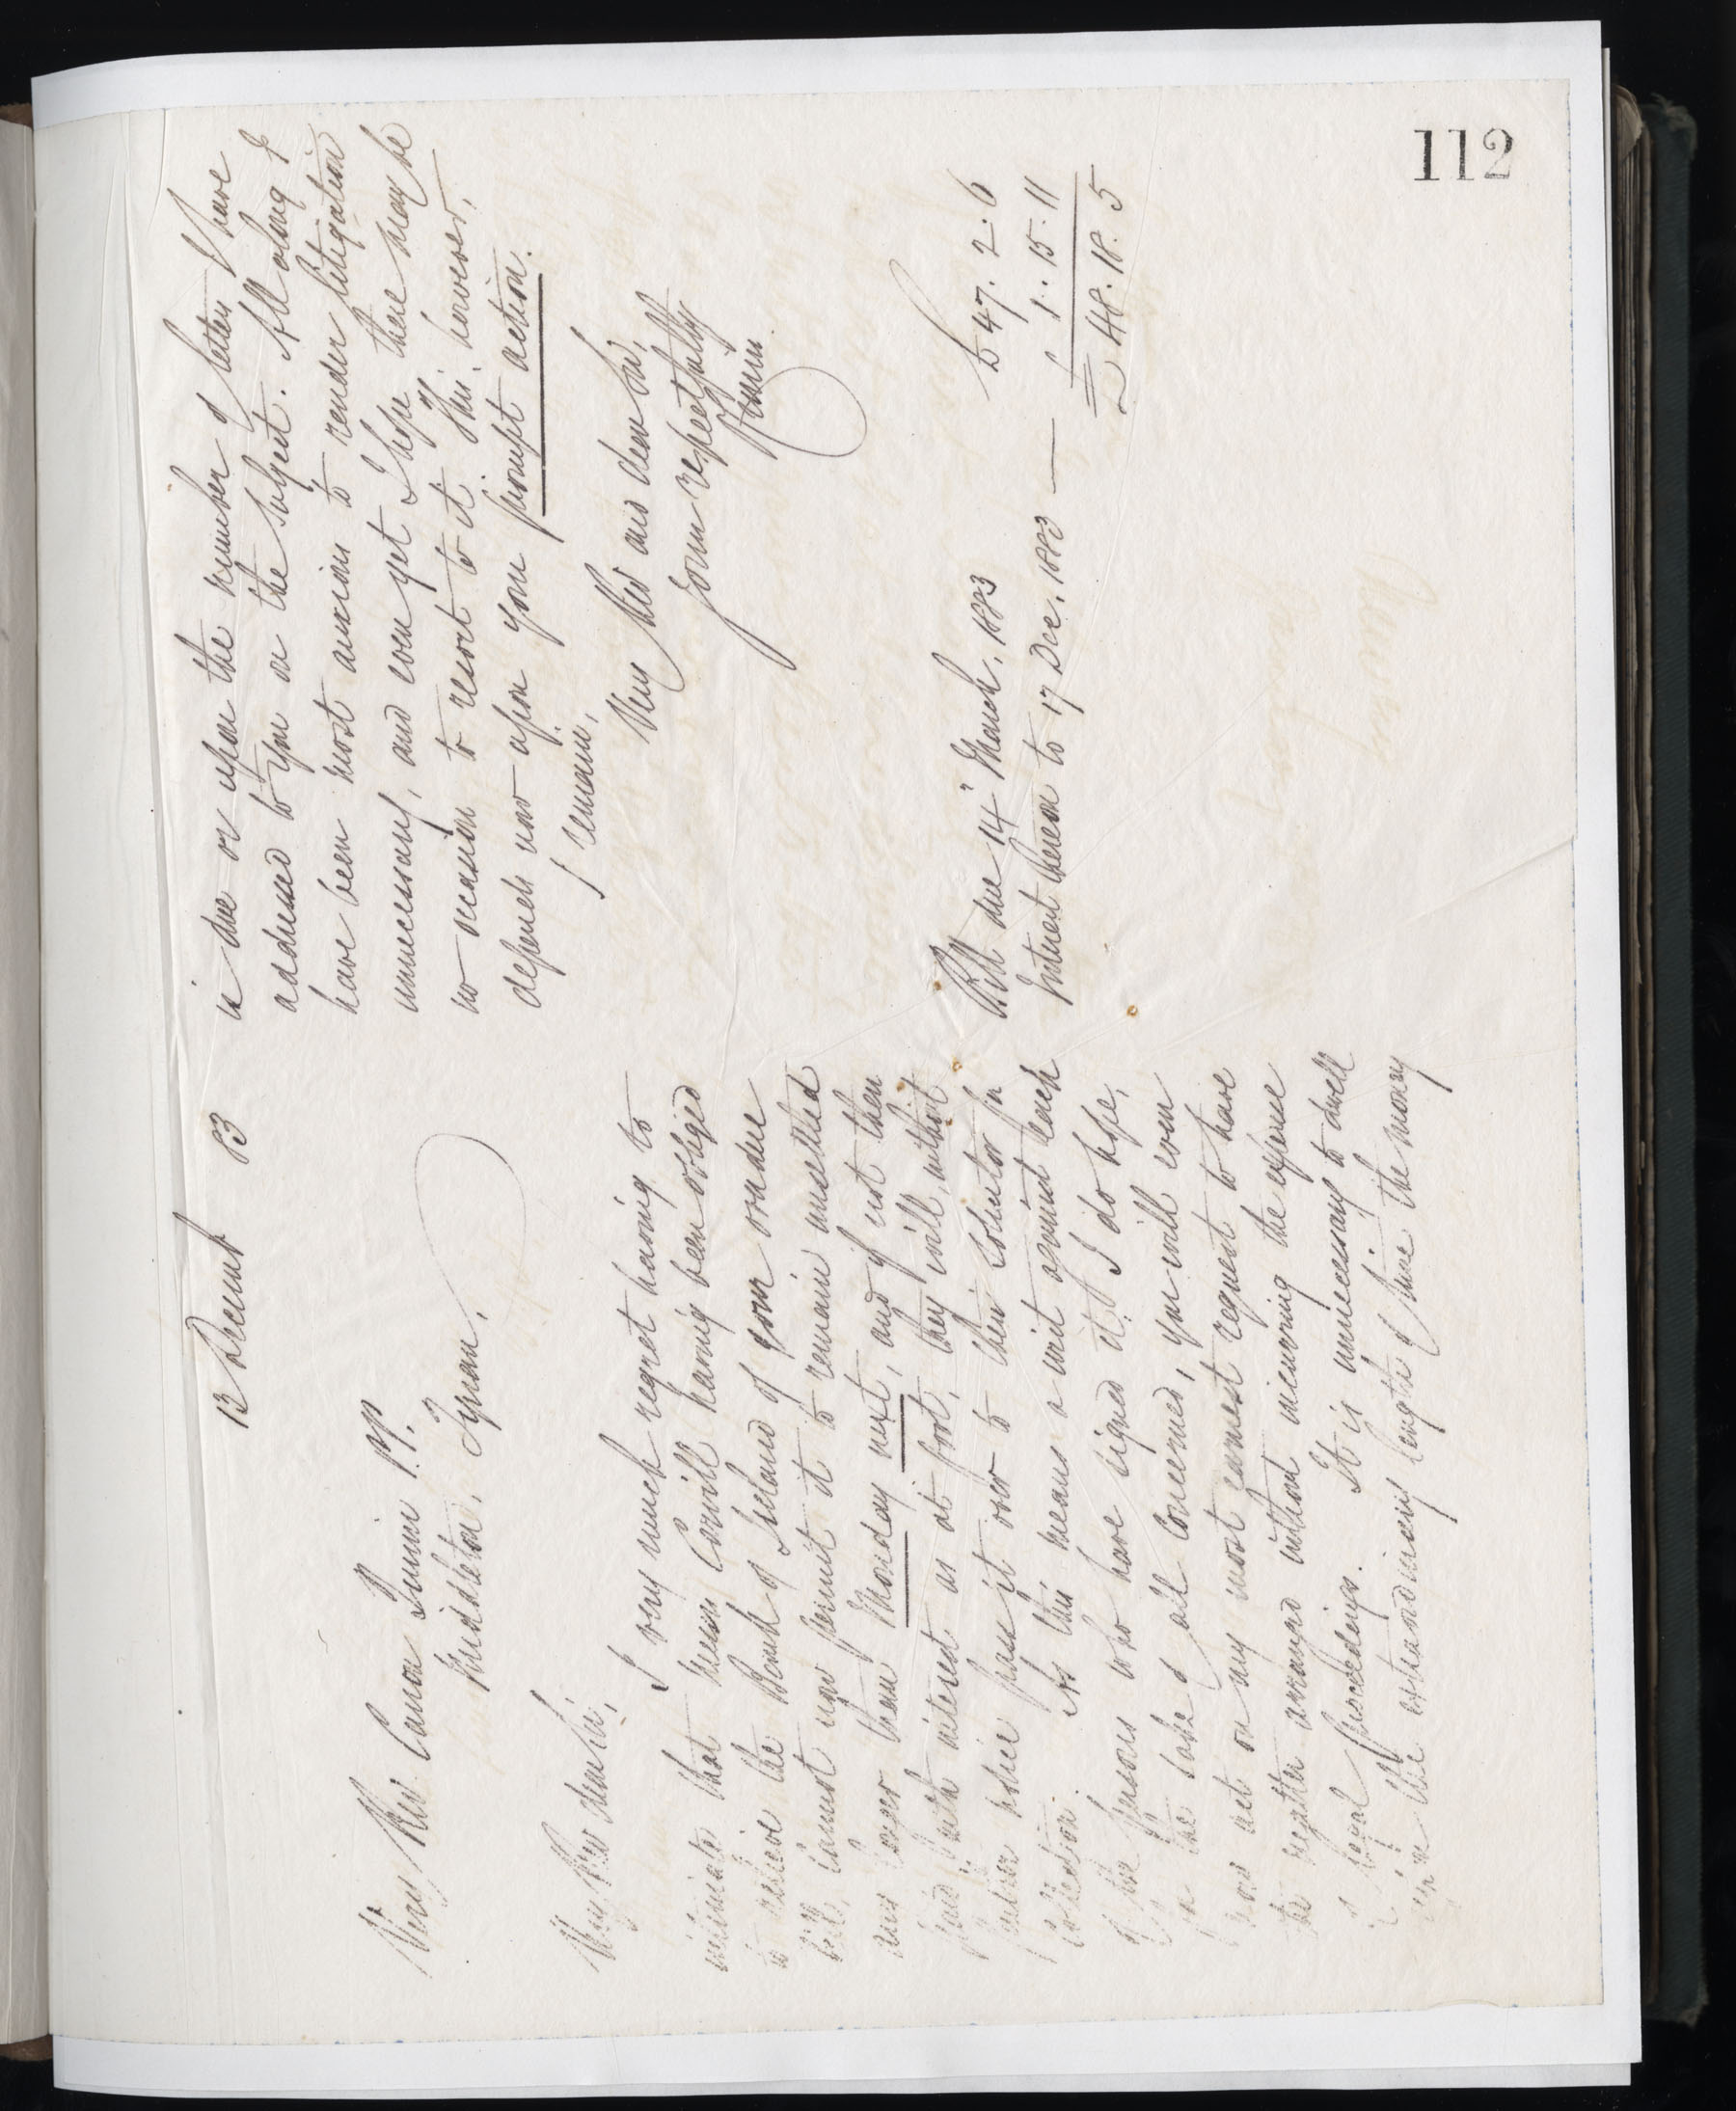 112
13 Decemb 83
Very Rev Canon Quinn P.P.
Middleton, Tynan.
Very Rev dear Sir,
I very much regret having to
intimate that Messrs Corvill having been obliged
to retire the Bank of Ireland of your overdue
bill, cannot now permit it to remain unsettled
any longer than Monday next, and if not then
paid with interest as at foot, they will, without
further notice pass it over to their solicitor for
collection. As this means a writ against each
of the persons who have signed it, I do hope,
for the sake of all concerned, you will even
now act on my most earnest request to have
the matter arranged without incurring the expense
of legal proceedings. It is unnecessary to dwell
upon the extraordinary length of time the money
is due or upon the number of letters I have
addressed to you on the subject. All along I
have been most anxious to render litigation
unnecessary, and even yet I hope there may be
no occasion to resort to it. This, however,
depends now upon your prompt action.
I remain,
Very Rev and dear Sir,
Yours respectfully
Bill due 14" March, 1883 £47. 2. 6
Interest thereon to 17 Dec. 1883 — 1. 15. 11
£48. 18. 5